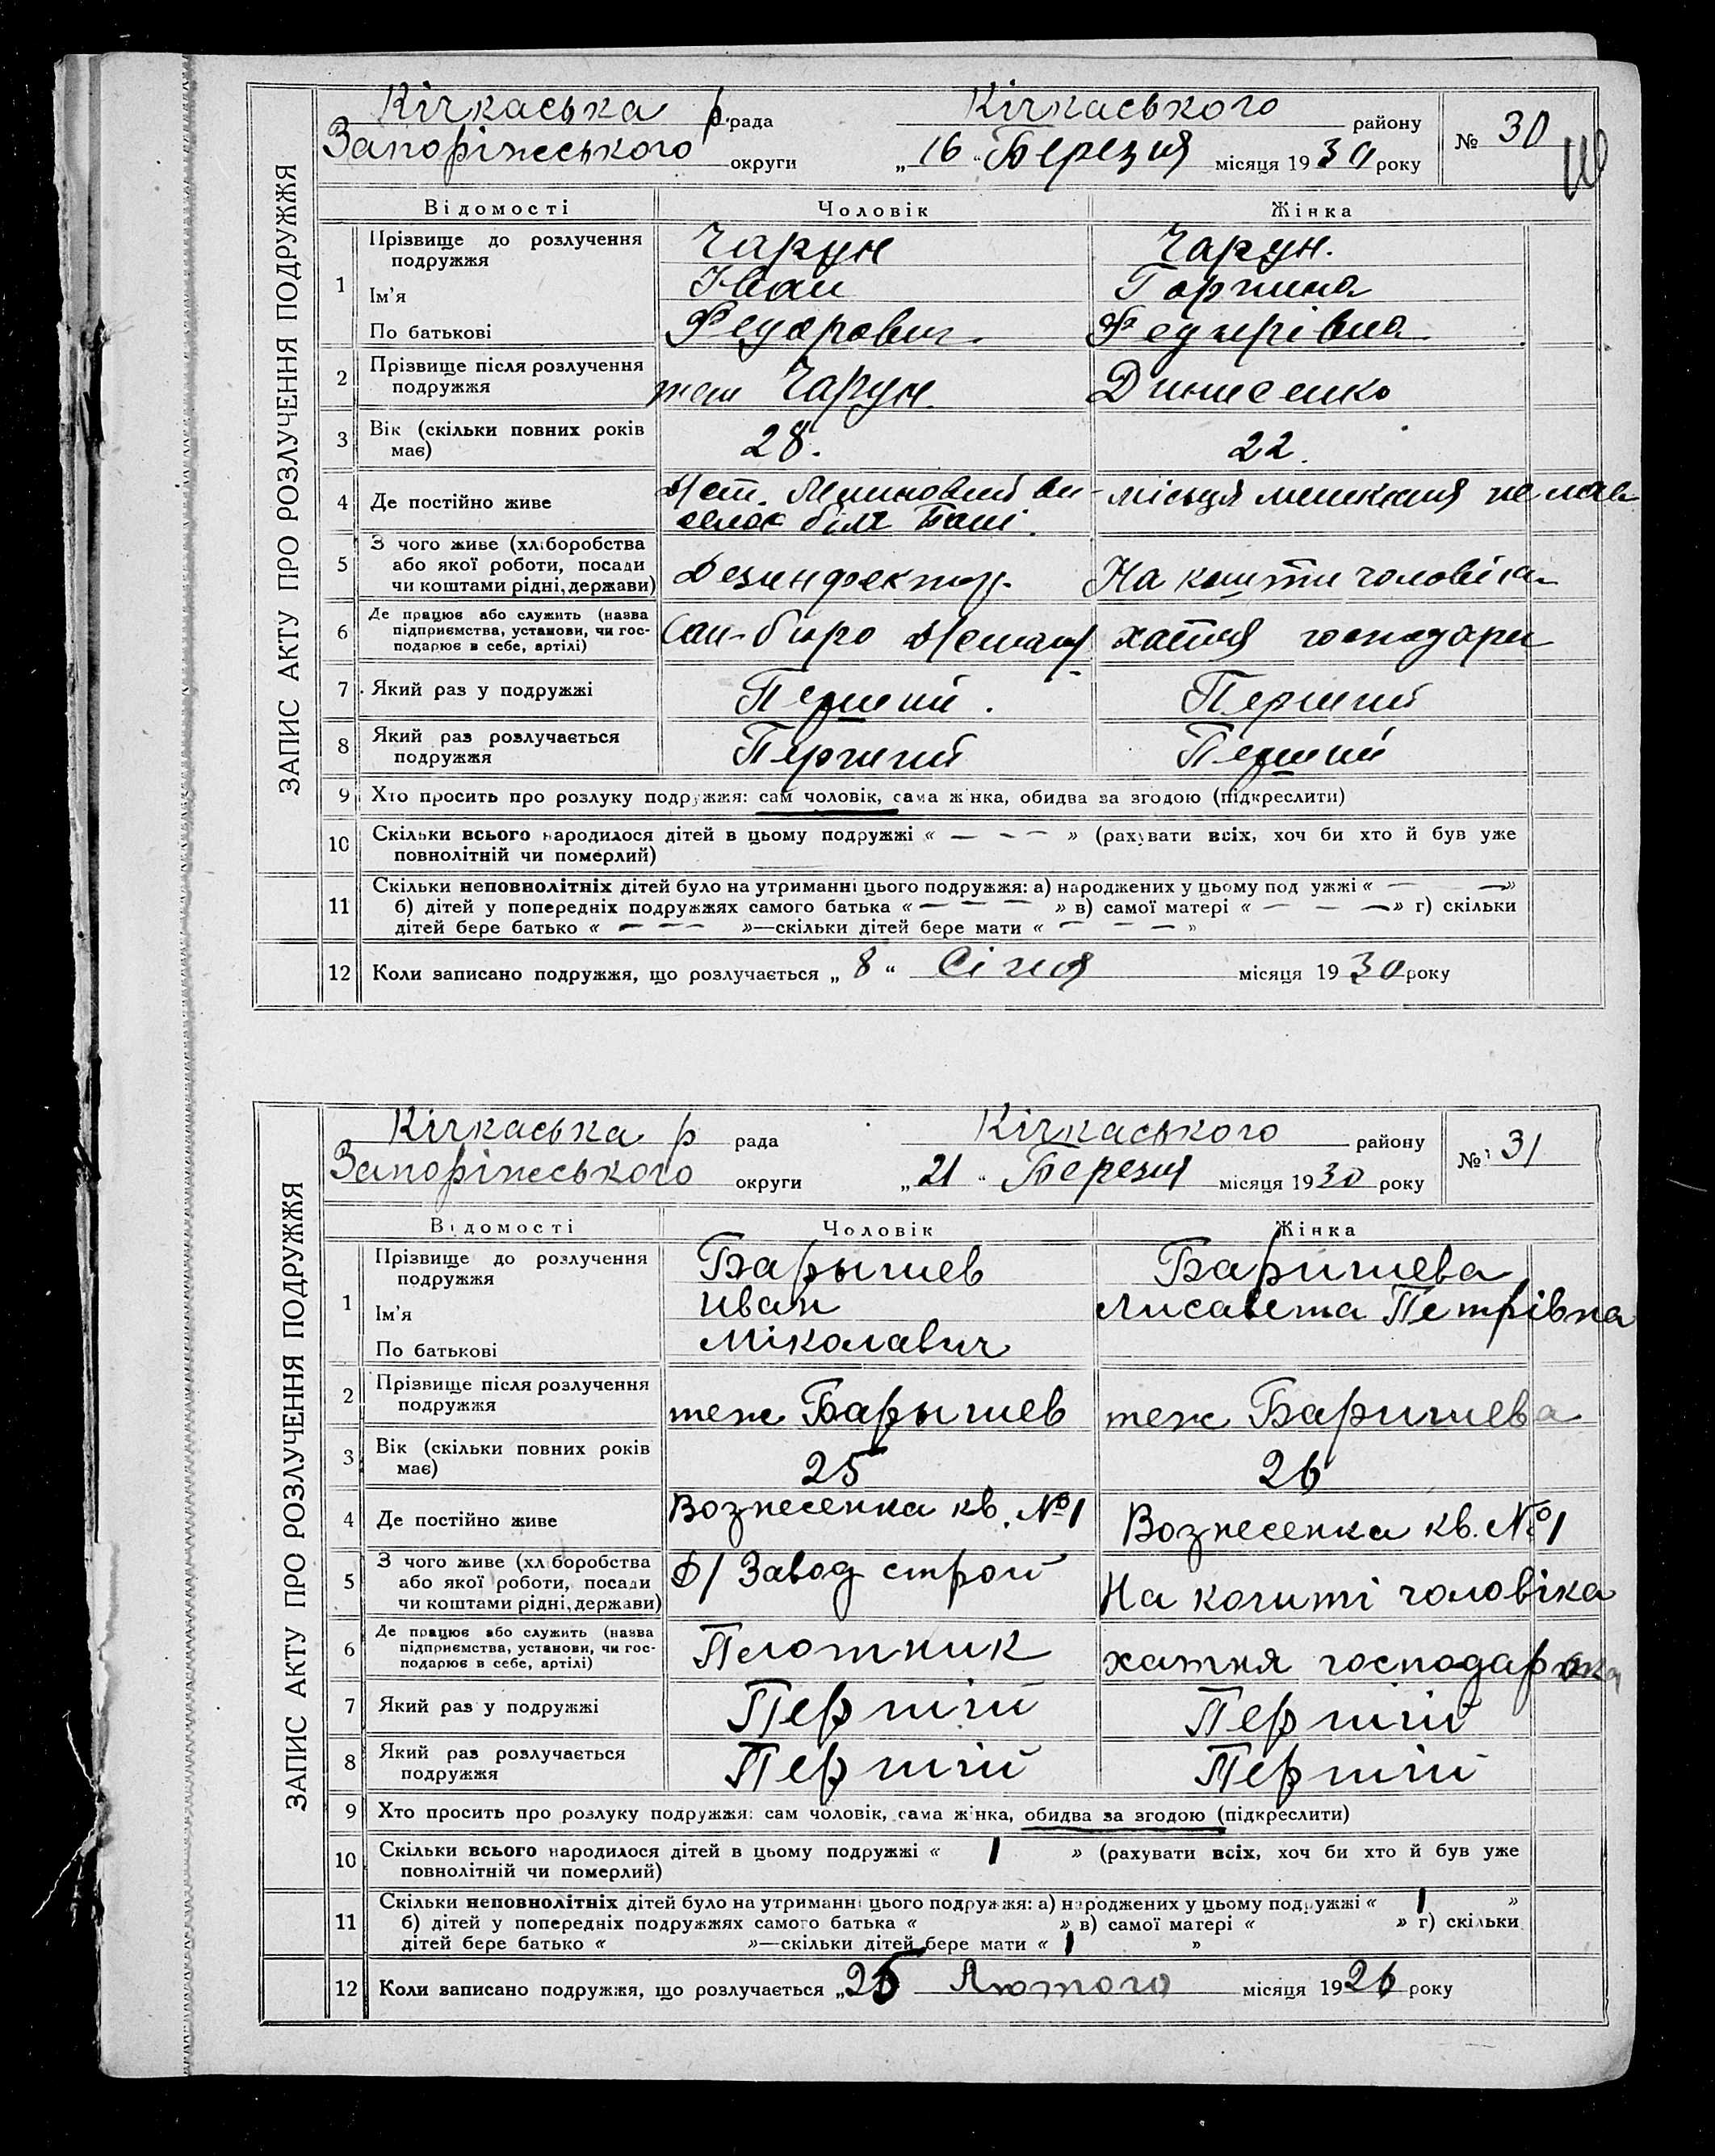 ЗАПИС АКТУ ПРО РОЗЛУЧЕННЯ ПОДРУЖЖЯ
Кічкаська р. рада Кічкаського району № 30
Запоріжського округи „16“ Березня місяця 1930 року
Відомості Чоловік Жінка
1 Прізвище до розлучення подружжя Чарун Чарун.
Ім'я Іван
По батькові Федорович. Федорівна
2 Прізвище після розлучення подружжя теж Чарун.
3 Вік (скільки повних років має) 28. 22.
4 Де постійно живе місця мешкання не має
селок біля Бані.
5 З чого живе (хліборобства або якої роботи, посади чи коштами рідні, держави) Дезинфектор. На кошти чоловіка
6 Де працює або служить (назва підприємства, установи, чи господарює в себе, артілі) Сан-бюро хатня господарк
7 Який раз у подружжі Перший. Перший
8 Який раз розлучається подружжя Перший Перший
9 Хто просить про розлуку подружжя: сам чоловік, сама жінка, обидва за згодою (підкреслити)
10 Скільки всього народилося дітей в цьому подружжі « — — — » (рахувати всіх, хоч би хто й був уже
повнолітній чи померлий)
11 Скільки неповнолітніх дітей було на утриманні цього подружжя: а) народжених у цьому подружжі « — — »
б) дітей у попередніх подружжях самого батька « — — — » в) самої матері « — — — » г) скільки
дітей бере батько « — — — »—скільки дітей бере мати « — — — »
12 Коли записано подружжя, що розлучається „8“ Січня місяця 1930 року
ЗАПИС АКТУ ПРО РОЗЛУЧЕННЯ ПОДРУЖЖЯ
Кічкаська р рада Кічкаського району № 31
Запоріжського округи „21“ Березня місяця 1930 року
Відомості Чоловік Жінка
1 Прізвище до розлучення подружжя Барышев Баришева
Ім'я Иван Лисавета Петрівна
По батькові Міколавич
2 Прізвище після розлучення подружжя теж Барышев теж Баришева
3 Вік (скільки повних років має) 25 26
4 Де постійно живе Вознесенка кв. №1 Вознесенка кв. №1
5 З чого живе (хліборобства або якої роботи, посади чи коштами рідні, держави) Завод строй На кошті чоловіка
6 Де працює або служить (назва підприємства, установи, чи господарює в себе, артілі) Плотник хатня господарка
7 Який раз у подружжі Перший Перший
8 Який раз розлучається подружжя Перший Перший
9 Хто просить про розлуку подружжя: сам чоловік, сама жінка, обидва за згодою (підкреслити)
10 Скільки всього народилося дітей в цьому подружжі « 1 » (рахувати всіх, хоч би хто й був уже
повнолітній чи померлий)
11 Скільки неповнолітніх дітей було на утриманні цього подружжя: а) народжених у цьому подружжі « 1 »
б) дітей у попередніх подружжях самого батька « » в) самої матері « » г) скільки
дітей бере батько « »—скільки дітей бере мати « 1 »
12 Коли записано подружжя, що розлучається „25 Лютого місяця 1926 року